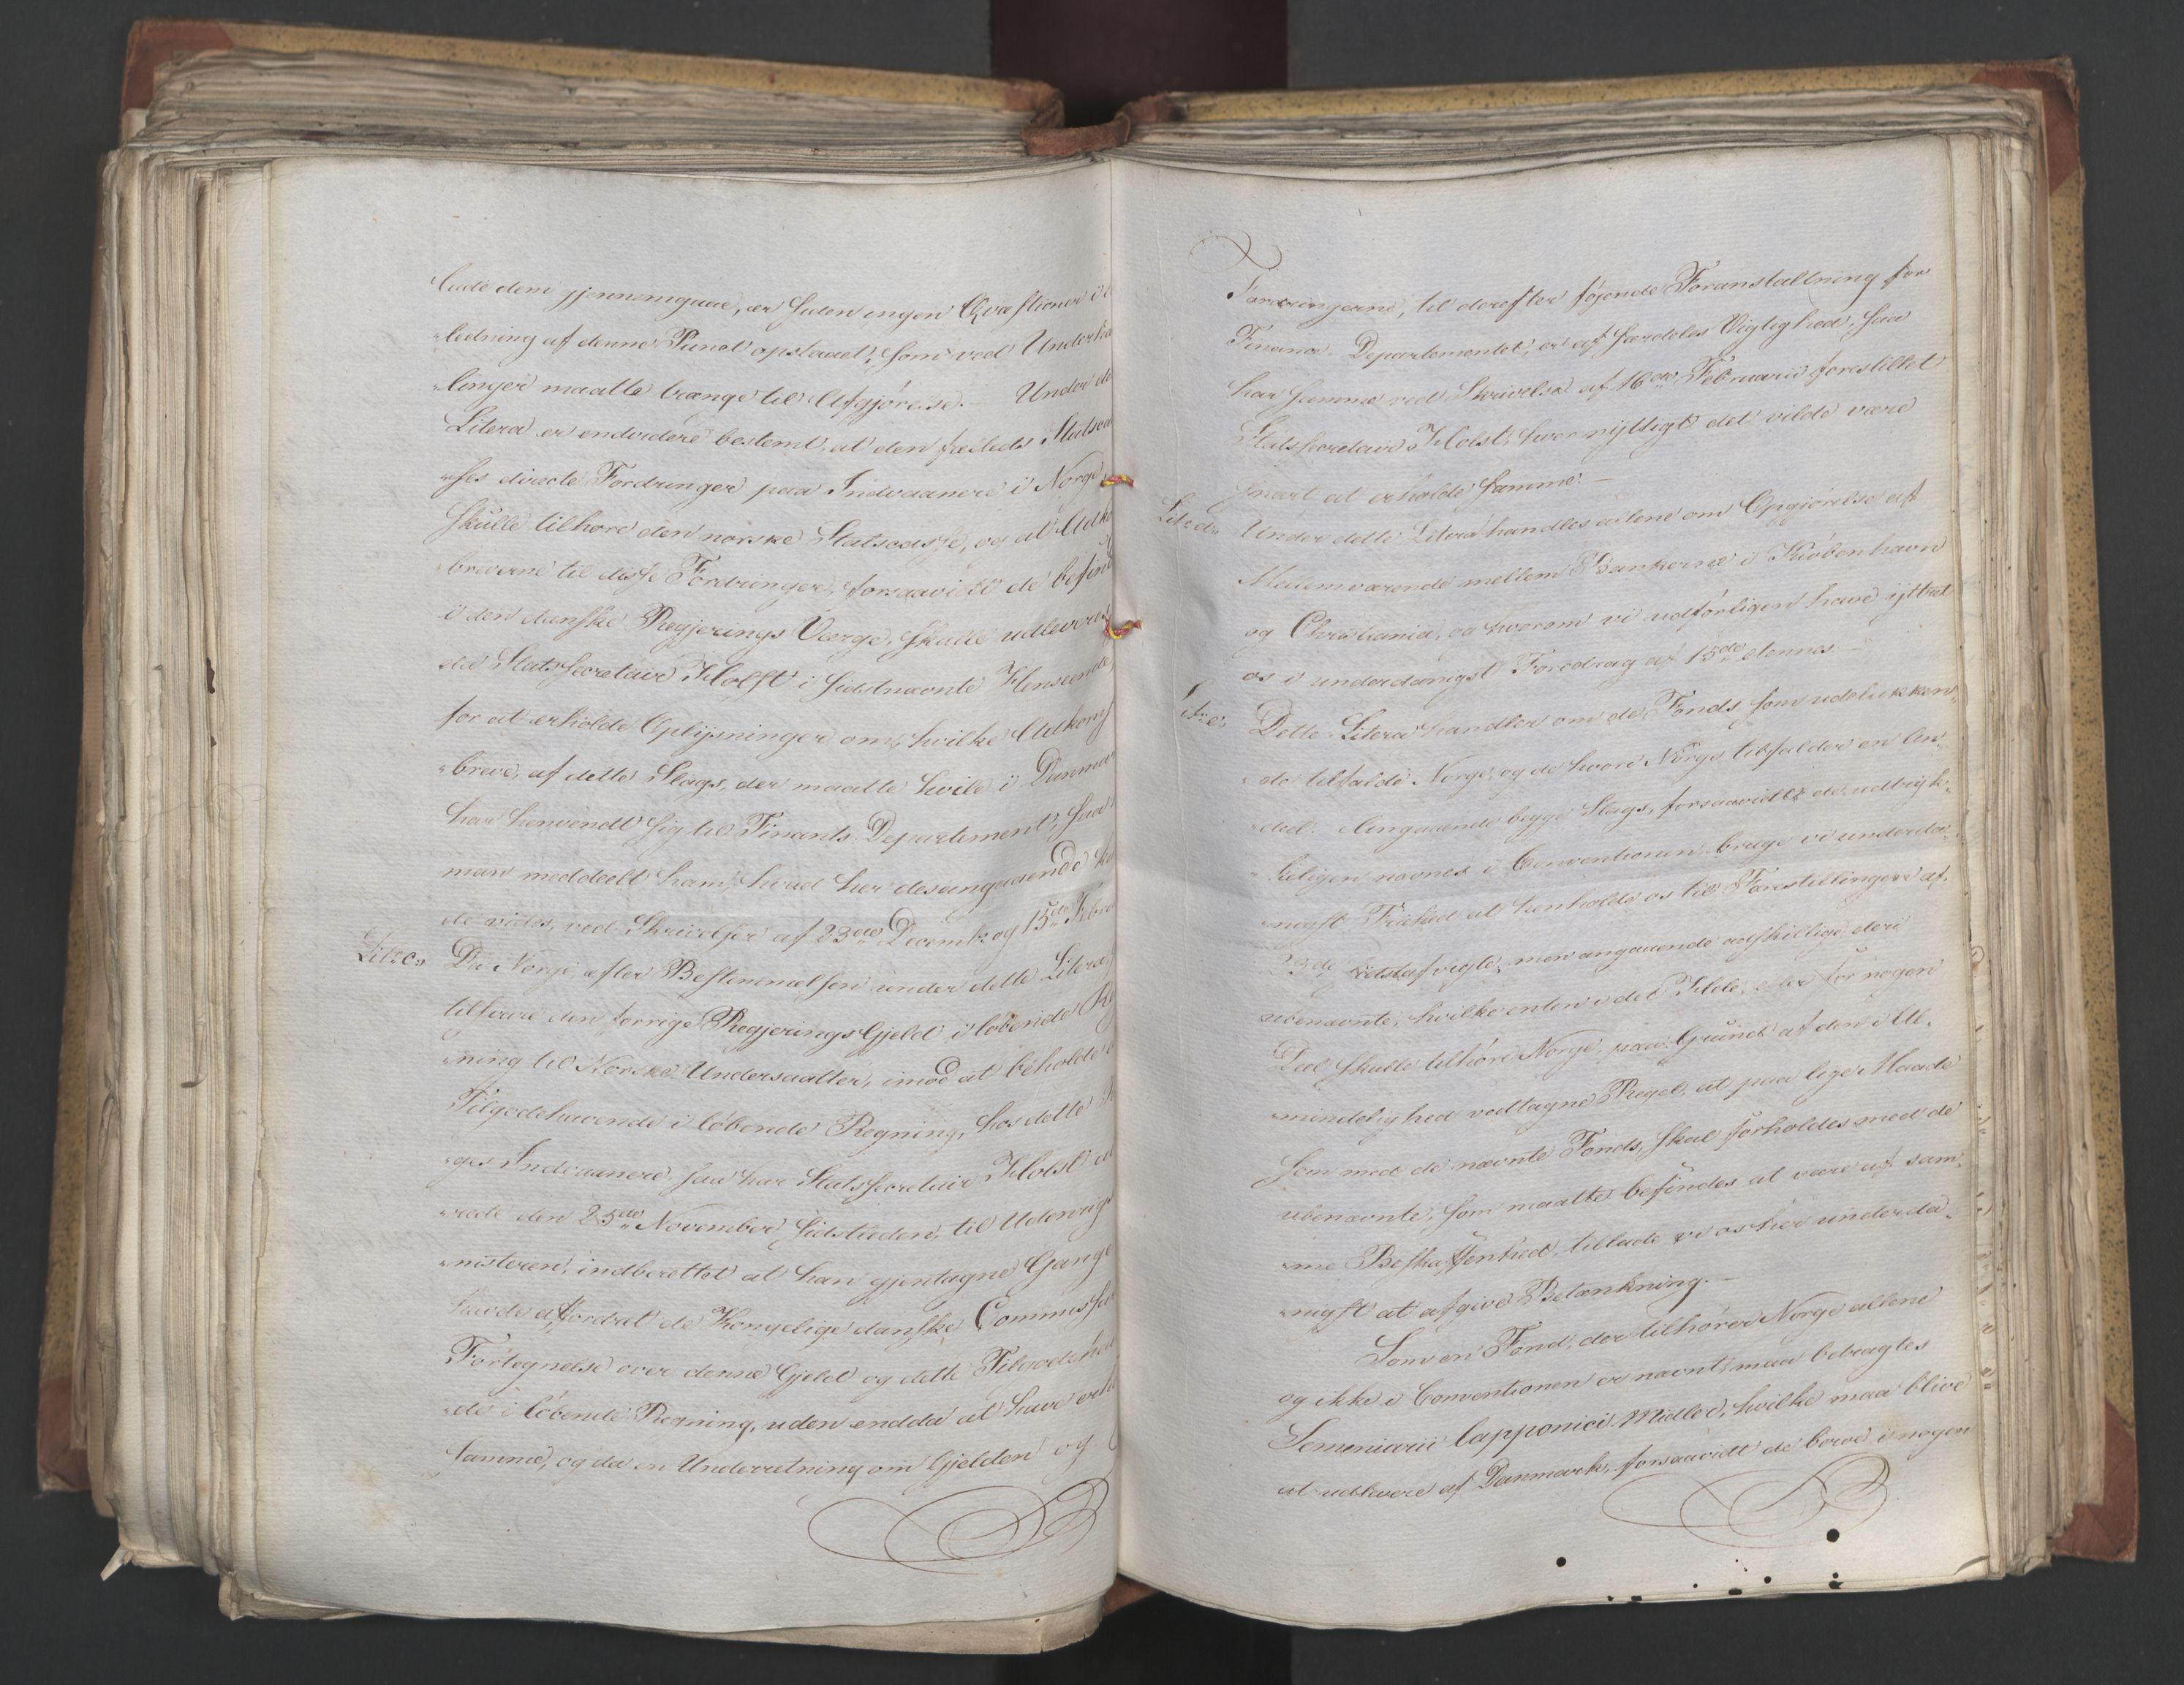 lade dem gjennemgaae, er siden ingen Qvæstioner i A
„ledning af denne Punct opstaaet, som ved Underha
„linger maatte trænge til Afgjørelse. — Under de
Litera er endvidere bestemt, at den fælleds Statsca
„ses directe Fordringer paa Indvaanere i Norge,
skulle tilhøre den norske Statscasse, og at Adko
„breverne til disse Fordringer, forsaavidt de befind
i den danske Regjerings Værge, skulle udleveres
da Statssecretair Holst i sidstnævnte Henseende,
for at erholde Oplysninger om, hvilke Adkomst
„breve, af dette Slags, der maatte hvile i Danma
har henvendt sig til Finants Departementet, saa
man meddeelt ham, hvad her desangaaende k
de vides, ved Skrivelser af 23de Decembr og 15de Febru
Litr. c. Da Norge, efter Bestemmelsen under dette Litera,
tilsvare den forrige Regjerings Gjeld i løbende R
„ning til Norske Undersaatter, imod at beholde
Tilgodehavende i løbende Regning, hos dette R
„ges Indvaanere, saa har Statssecretair Holst al
„rede den 25de November sidstleden, til Udenrigs
„nisteren, indberettet at han gjentagne Gange
havde affordret de Kongelige danske Commissa
Fortegnelse over denne Gjeld og dette Tilgodehav
„de i løbende Regning, uden endda at have erh
samme, og da en Underretning om Gjelden og
Fordringerne, til derefter føjende Foranstaltning for
Finance-Departementet, er af særdeles Vigtighed, saa
har samme ved Skrivelse af 16de Februarii forestillet
Statssecretair Holst, hvor nyttigt det vilde være
snart at erholde samme. —
Litr. d. Under dette Litera handles alene om Opgiørelse af
Mellemværende mellem Bankerne i Kiøbenhavn
og Christiania, og hvorom vi udførligen have yttret
os i underdanigst Foredrag af 15de dennes. —
Litr. e. Dette Litera handler om de Fonds, som udelukken„
„de tilfalde Norge, og de hvori Norge tilfalder en An„
„deel. Angaaende begge Slags, forsaavidt de udtryk„
„keligen nævnes i Conventionen, bruge vi underda„
„nigst Friehed at henholde os til Forestillingen af
23de sidstafvigte, men angaaende adskillige deri
ubenævnte, hvilke enten i det Hele, eller for nogen
Deel skulle tilhøre Norge, paa Grund af den i Al„
„mindelighed vedtagne Regel, at paa lige Maade
som med de nævnte Fonds, skal forholdes med de
ubenævnte, som maatte befindes at være af sam„
„me Beskaffenhed, tillade vi os her underda„
„nigst at afgive Betænkning. —
Som en Fond, der tilhører Norge allene
og ikke i Conventionen er nævnt, maa betragtes
Seminarii lapponici Midler, hvilke maa blive
at udlevere af Danmark, forsaavidt de beroe i nogen